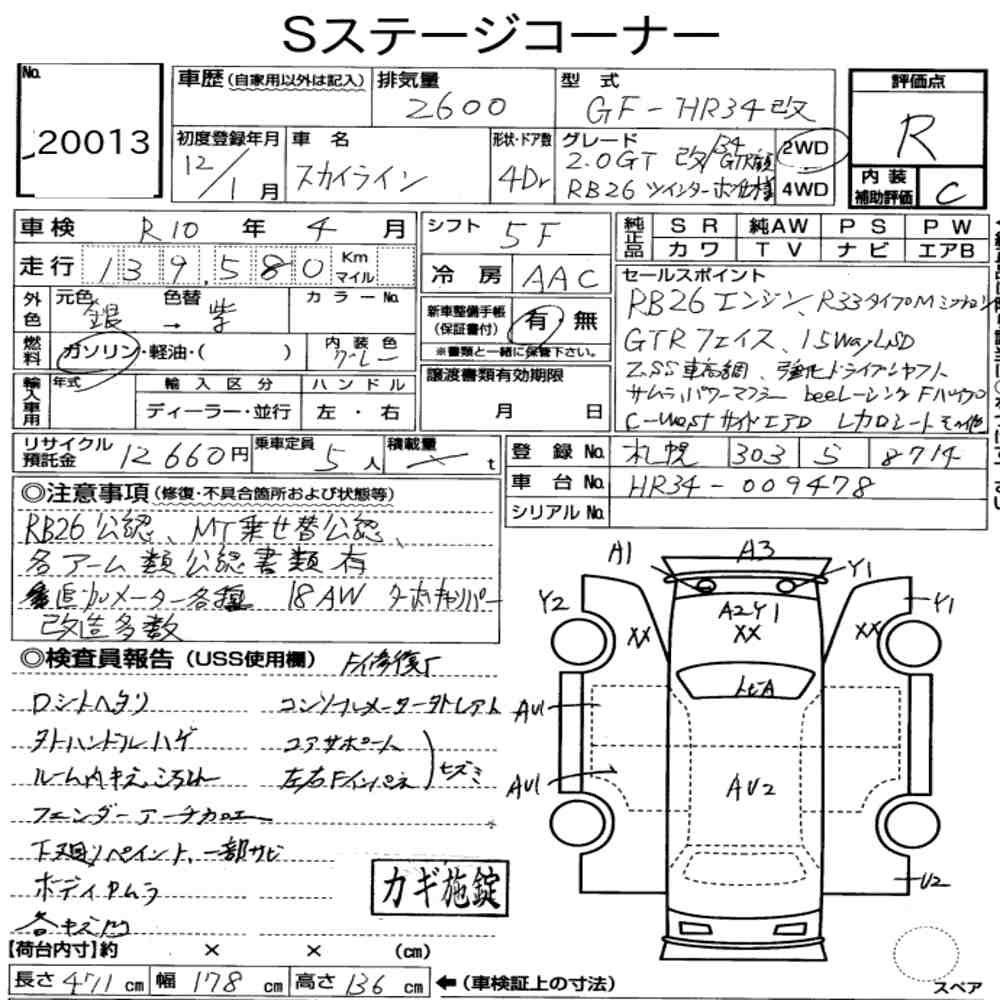 Sステージコーナー
No.
20013
車歴(自家用以外は記入)
排気量
2600
型式
GF-HR34改
評価点
R
初度登録年月
12/1月
車名
スカイライン
形状・ドア数
4Dr
グレード
2.0GT 改/34GTR顔
RB26 ツインターボ仕様
2WD
4WD
内装補助評価
C
車検 R10年 4月
シフト 5F
純正品 SR 純AW PS PW
カワ TV ナビ エアB
走行 139,580 Km マイル
冷房 AAC
セールスポイント
RB26エンジン、R33タイプMミッション
GTRフェイス、1.5WayLSD
ZSS車高調、強化ドライブシャフト
サムライパワーマフラー beeレーシングFバンパー
C-West サイドエアロ レカロシート その他
外色 元色 銀 → 色替 紫 カラーNo.
新車整備手帳(保証書付) 有 無
※書類と一緒に保管下さい。
燃料 ガソリン・軽油・( ) 内装色 グレー
輸入車用 年式 輸入区分 ハンドル
ディーラー・並行 左・右
譲渡書類有効期限
月 日
リサイクル預託金 12660円 乗車定員 5人 積載量 t
登録No. 札幌 303 ら 8714
車台No. HR34-009478
シリアルNo.
◎注意事項(修復・不具合箇所および状態等)
RB26公認、MT乗せ替公認、
各アーム類公認書類有
追加メーター各種 18AW ターボキャリパー
改造多数
◎検査員報告(USS使用欄) F修復
ロシートヘタリ コンソールメーター外レアト
外ハンドルハゲ コアサポート
ルーム内キズ 左右Fインパネ ヒズミ
フェンダーアーチカロエ
下廻りペイント、一部サビ
ボディヤムラ
各キズ凹
カギ施錠
A1 A3 Y1
Y2 XX A2Y1 XX XX Y1
トビA
AU1
AU1 AU2
U2
スペア
【荷台内寸】約 × × (cm)
長さ 471 cm 幅 178 cm 高さ 136 cm ←(車検証上の寸法)